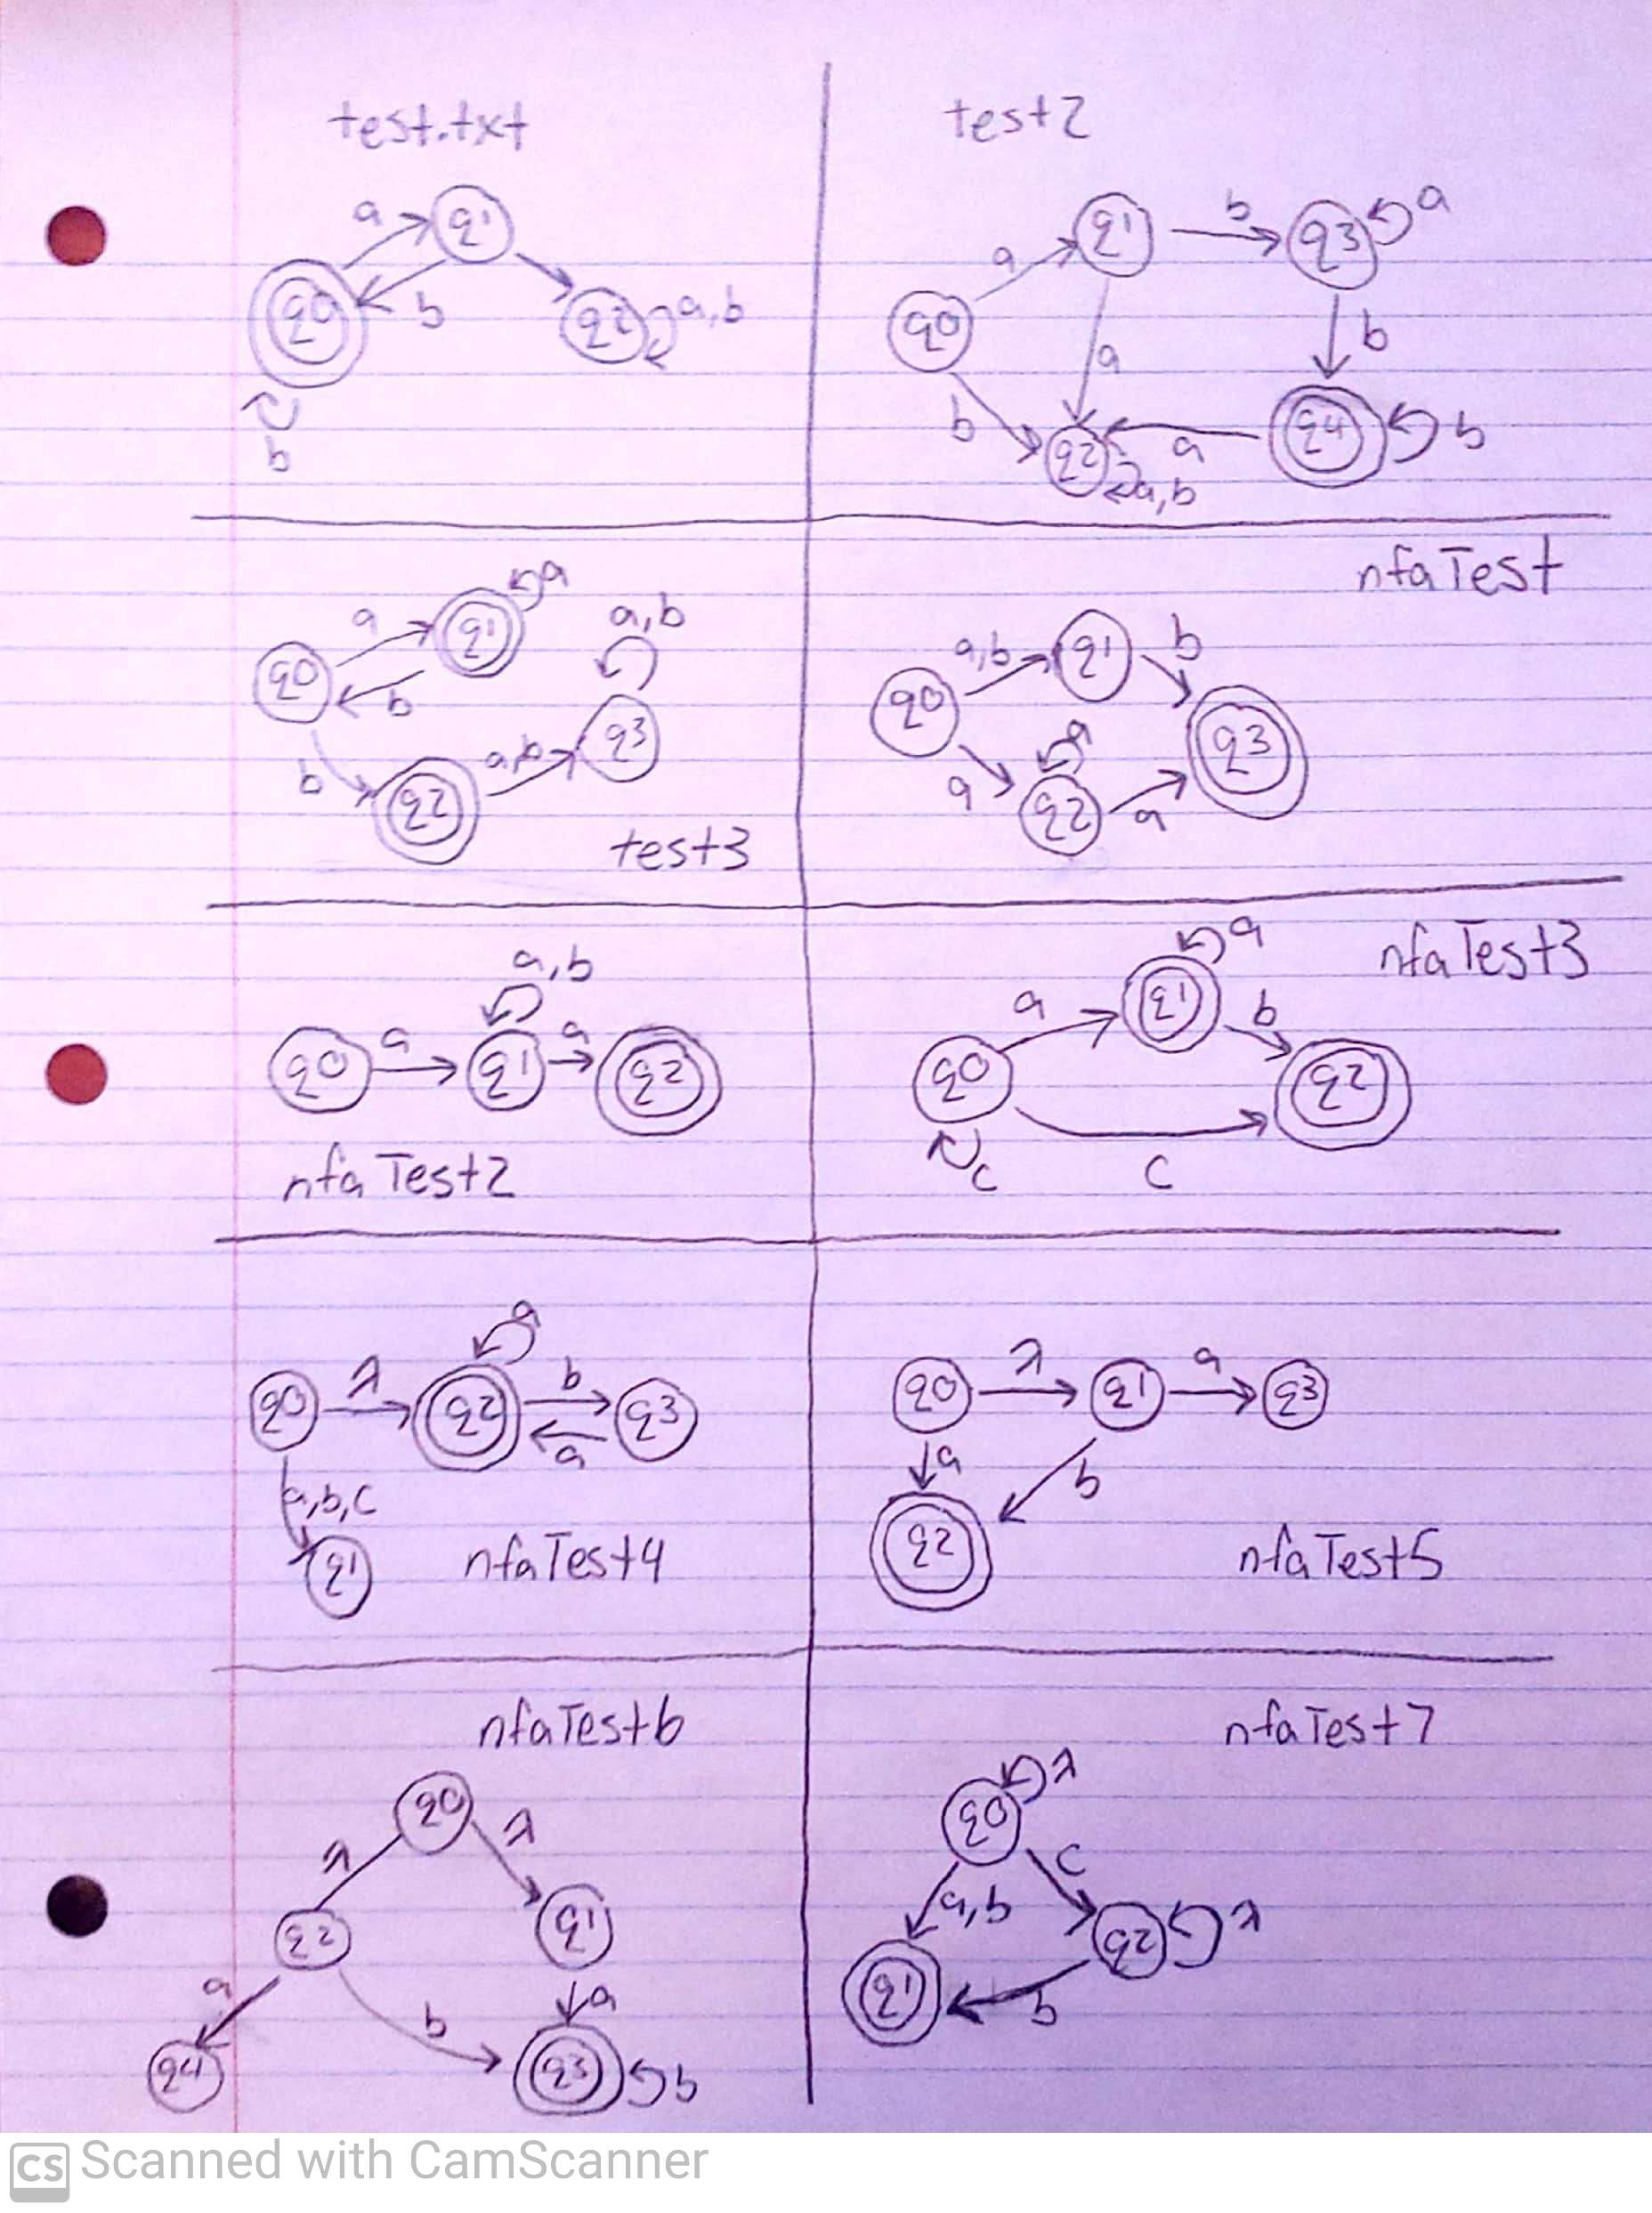 test.txt
a
q1
q0
b
q2
a,b
b
test2
q1
b
q3
a
a
q0
a
b
b
q2
a
q4
b
a,b
a
a
q1
a,b
q0
b
q3
b
a,b
q2
test3
nfaTest
a,b
q1
b
q0
a
q3
a
q2
a
a,b
q0
a
q1
a
q2
nfaTest2
a
nfaTest3
a
q1
b
q0
q2
c
c
a
q0
λ
q2
b
q3
a
a,b,c
q1
nfaTest4
q0
λ
q1
a
q3
a
b
q2
nfaTest5
nfaTest6
q0
λ
λ
q2
q1
a
a
b
q4
q3
b
nfaTest7
λ
q0
c
a,b
q2
λ
q1
b
CS Scanned with CamScanner